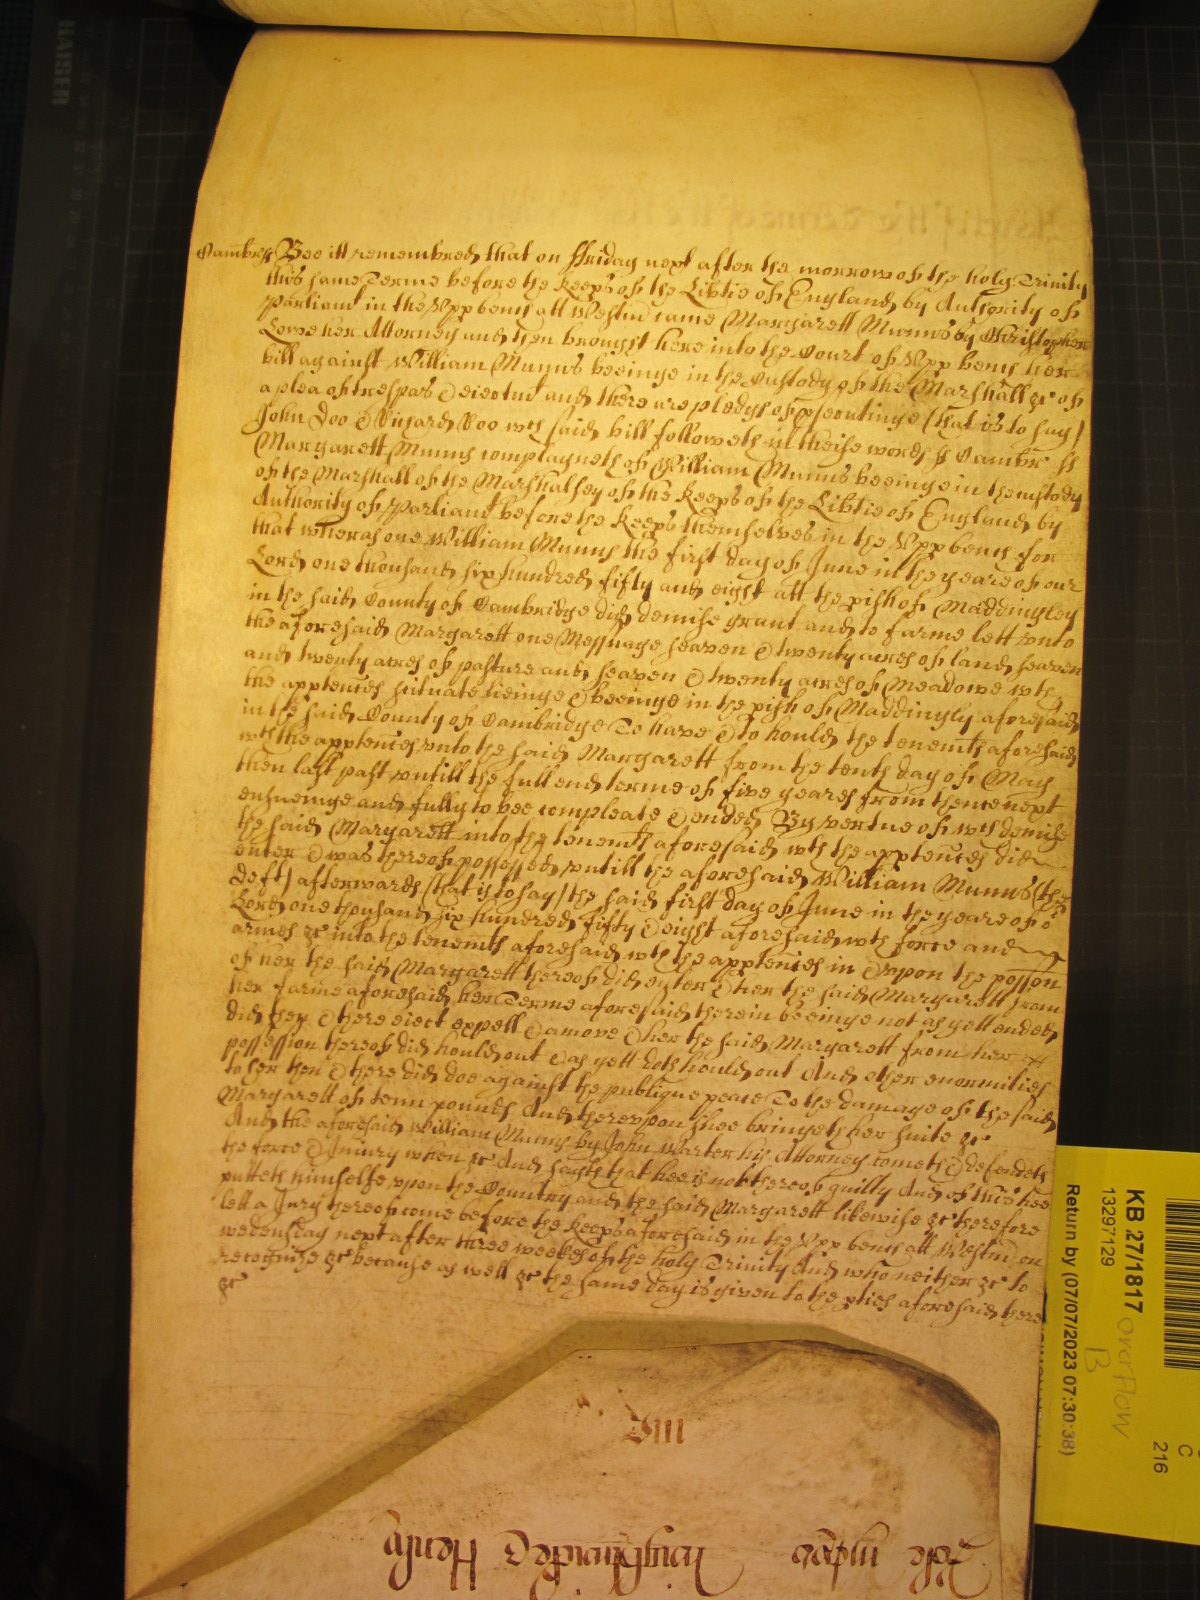 Cambrss Bee itt remembred that on ffriday next after the morrow of the holy Trinity
this same Terme before the Keeps of the Libtie of England by Authority of
Parliamt in the Vpp bench att Westm came Margarett Munns by Christopher
Lowe her Attorney and then brought here into the Court of Vpp bench her
bill against William Munns beeinge in the Custody of the Marshall &c of
a plea of trespas & eiectmt and there are pledgs of psecutinge (that is to say)
John Doo & Richard Roo wch said bill followeth in theise words ss Cambr ss
Margarett Munns complayneth of William Munns beeinge in the custody
of the Marshall of the Marshalsey of the Keeps of the Libtie of England by
Authority of Parliamt before the Keeps themselves in the Vpp bench for
that wheras one William Munns the first day of June in the yeare of our
Lord one thousand six hundred fifty and eight att the pish of Maddingley
in the said County of Cambridge did demise grant and to farme lett vnto
the aforesaid Margarett one Messuage seaven & twenty acres of land seaven
and twenty acres of pasture and seaven & twenty acres of Meadowe wth
the apptences scituate lieinge & beeinge in the pish of Maddingly aforesaid
in the said County of Cambridge To have & to hould the tenemts aforesaid
wth the apptences vnto the said Margarett from the tenth day of May
then last past vntill the full end terme of five yeares from thence next
ensueinge and fully to bee compleate & ended By vertue of wch demise
the said Margarett into the tenemts aforesaid wth the apptences did
enter & was thereof possessed vntill the aforesaid William Munns (the
Deft) afterwards (that is to say) the said first day of June in the yeare of o
Lord one thousand six hundred fifty & eight aforesaid wth force and
armes &c into the tenemts aforesaid wth the apptences in & vpon the possion
of her the said Margarett thereof did enter & her the said Margarett from
her farme aforesaid her Terme aforesaid therein beeinge not as yett ended
did then & there eiect expell & amove & her the said Margarett from her
possession thereof did hould out & as yett doth hould out And other enormities
to her then & there did doe against the publique peace To the damage of the said
Margarett of tenn pounds And therevpon shee bringeth her suite &c
And the aforesaid William Munns by John Warter his Attorney cometh & defendeth
the force & Iniury when &c And sayth that hee is not thereof guilty And of this hee
putteth himselfe vpon the Country and the said Margarett likewise &c therefore
lett a Jury thereof come before the Keeps aforesaid in the Vpp bench att Westm on
wedensday next after three weekes of the holy Trinity And who neither &c to
recognize &c because as well &c the same day is given to the pties aforesaid there
&c
Henly
KB 27/1817
13297129
Return by (07/07/2023 07:30:38)
overflow
B
C
216
KAISER